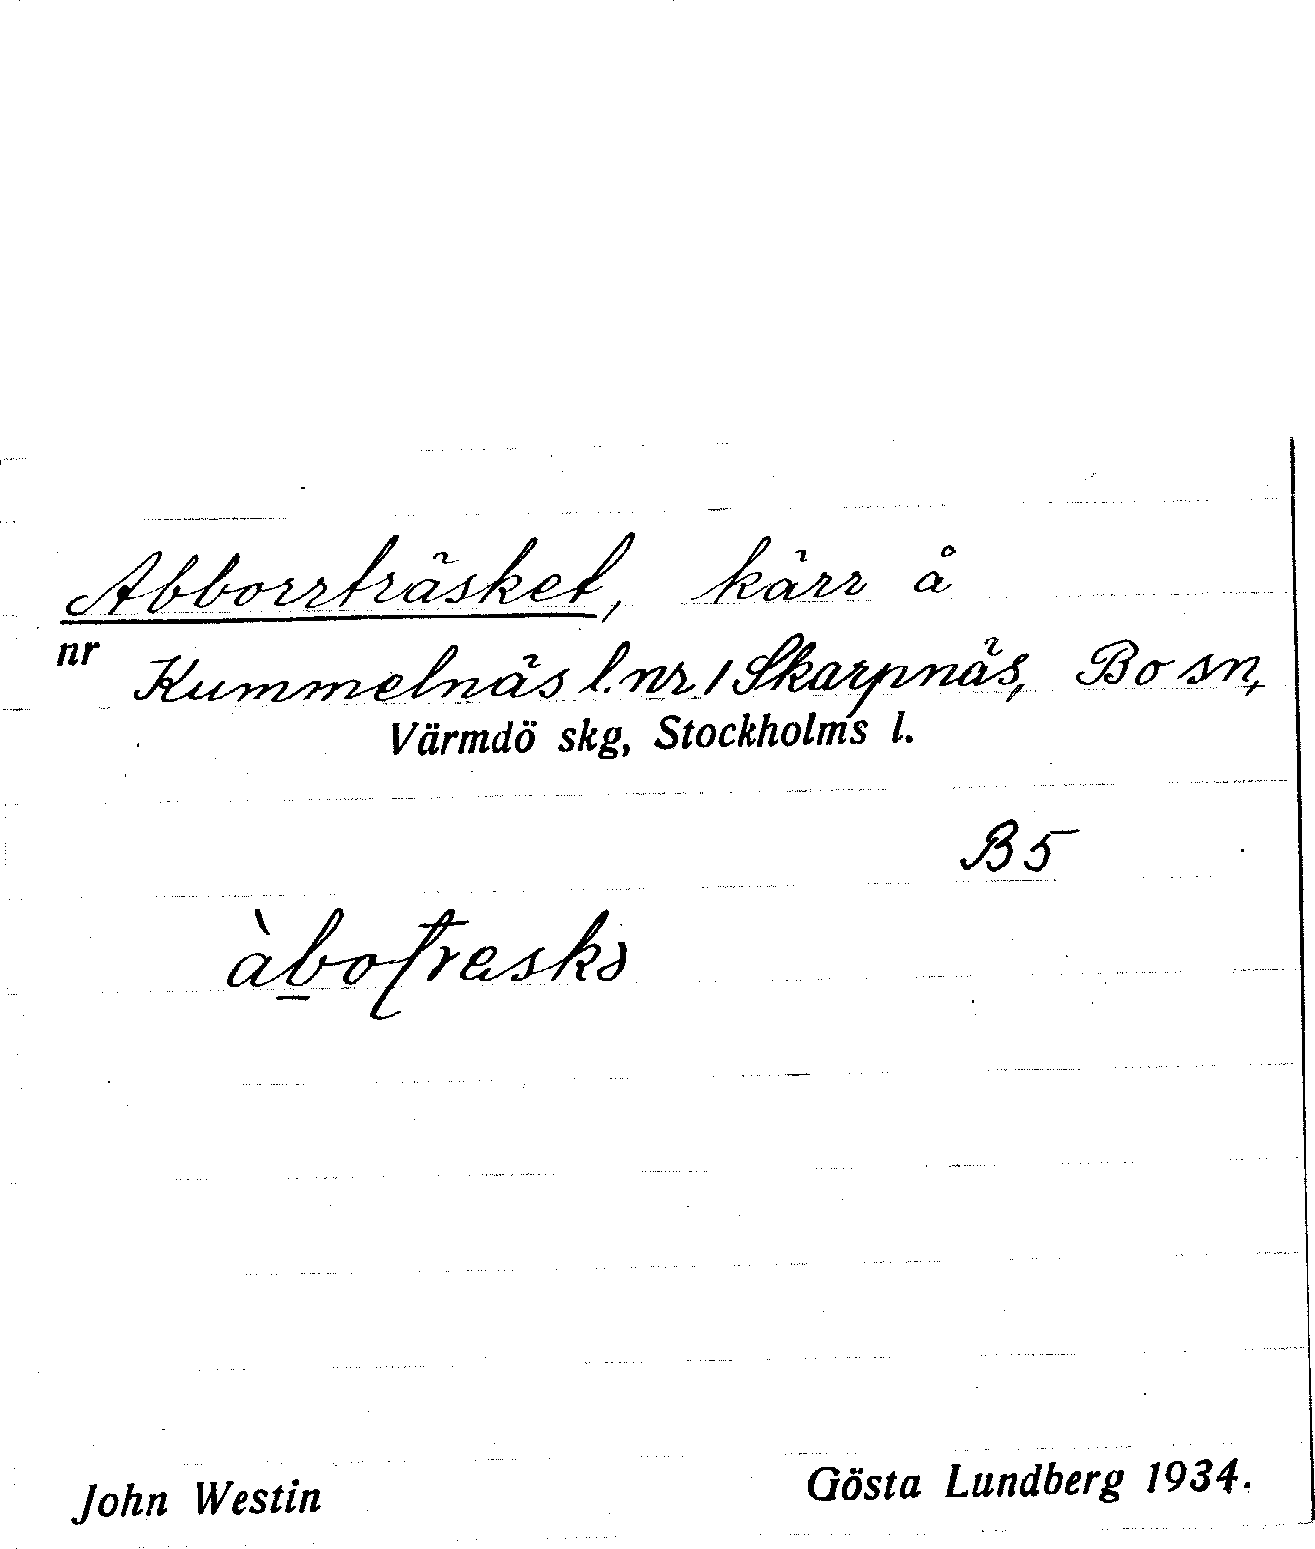 Abborrträsket, kärr å
nr Kummelnäs l.nr 1 Skarpnäs, Bo sn,
Värmdö skg, Stockholms l.
B5
àbotraskə
John Westin
Gösta Lundberg 1934.